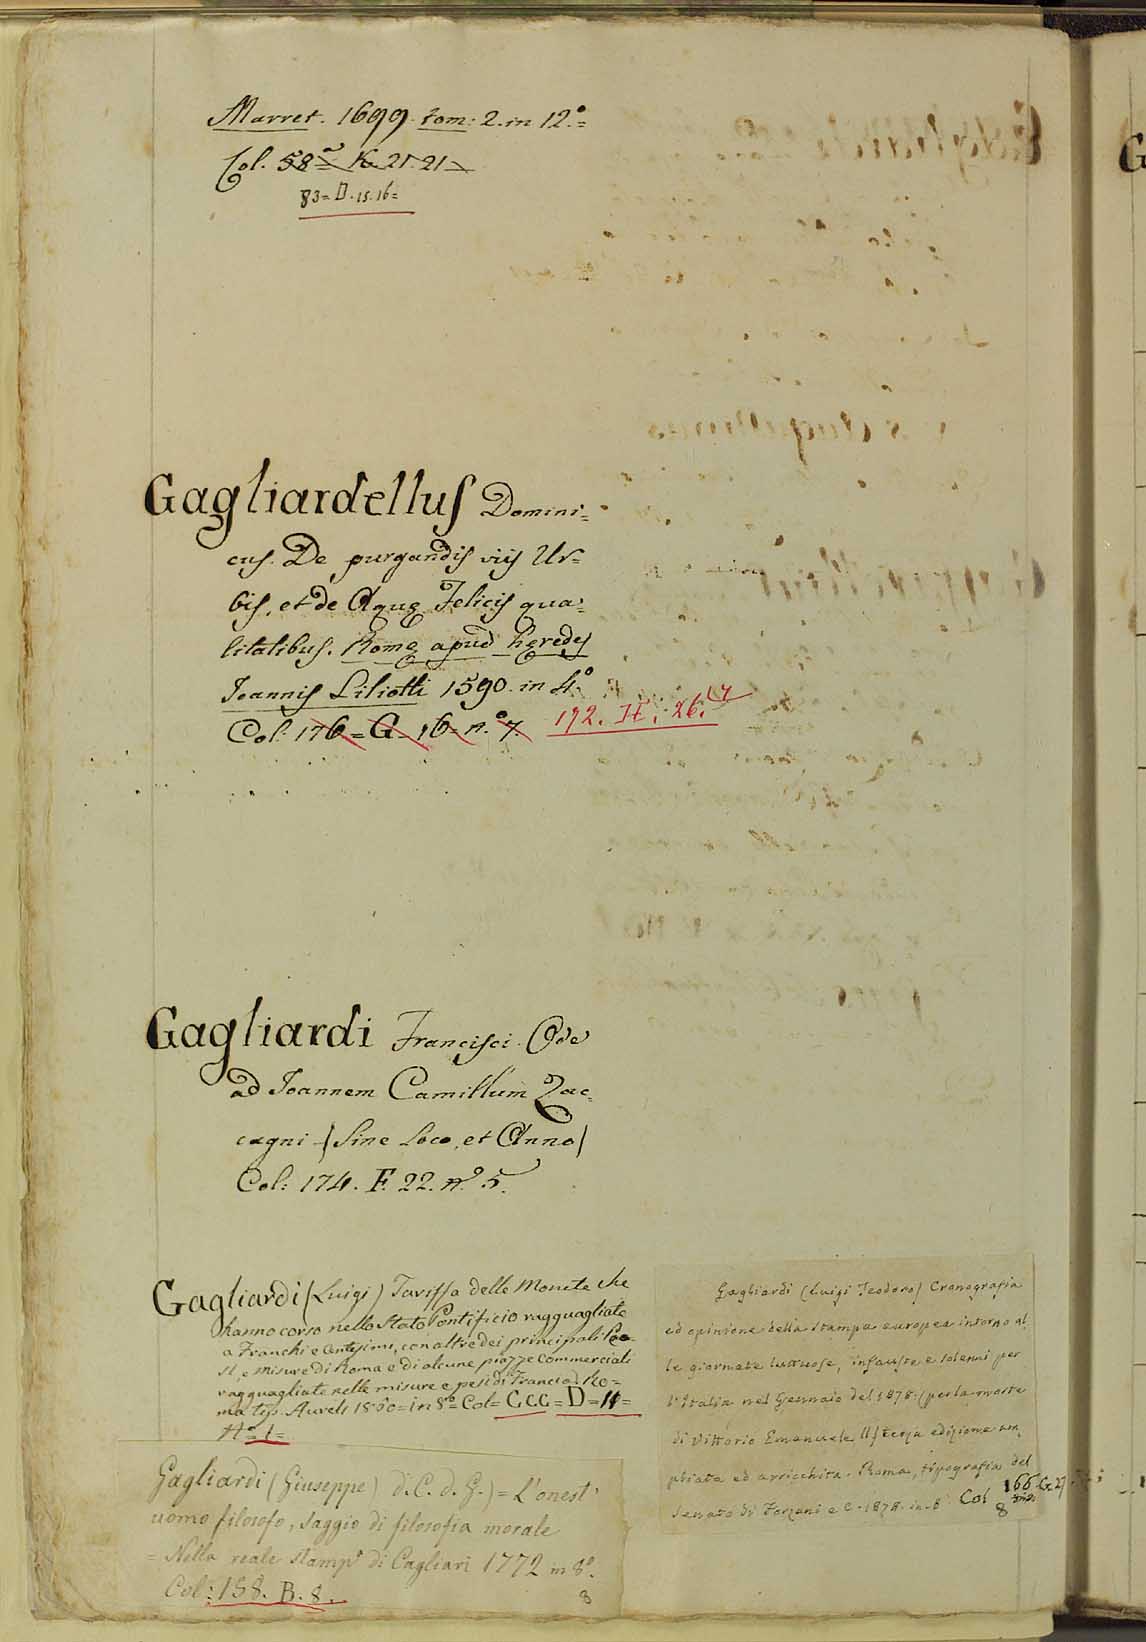 Marret. 1699. tom: 2. in 12.º=
Col. 58= K. 21. 21
83= D. 15. 16=
Gagliardellus Domini=
cus. De purgandis viis Ur=
bis, et de Aquę Felicis qua=
litatibus. Romę apud hęredes
Joannis Liliotti 1590. in 4.º
Col: 176= G= 16= n.º 7 192. H. 26. 17
Gagliardi Francisci. Ode
ad Joannem Camillum Zac=
cagni (Sine Loco, et Anno)
Col: 174. F. 22. nº 5.
Gagliardi (Luigi) Tariffa delle Monete che
hanno corso nello Stato Pontificio ragguagliate
a Franchi e Centesimi, con altre dei principali Pe=
si, e Misure di Roma e di alcune piazze commerciali
ragguagliate nelle misure e pesi di Francia. Ro=
ma tip. Aureli 1860= in 8º= Col= CCC= D= 11=
Gagliardi (Giuseppe) d. C. d. G.) = L'onest'
uomo filosofo, saggio di filosofia morale
= Nella reale stampª di Cagliari 1772 in 8º.
Col: 158. B. 8.
8
Gagliardi (Luigi Teodoro) Cronografia
ed opinione della stampa europea intorno al,
le giornate luttuose, infauste e solenni per
l'Italia nel Gennaio del 1878. (per la morte
di Vittorio Emanuele II) terza edizione am,
pliata ed arricchita. Roma, tipografia del
Senato di Forzani e C. 1878. in-8º Col 166. G. 27
8